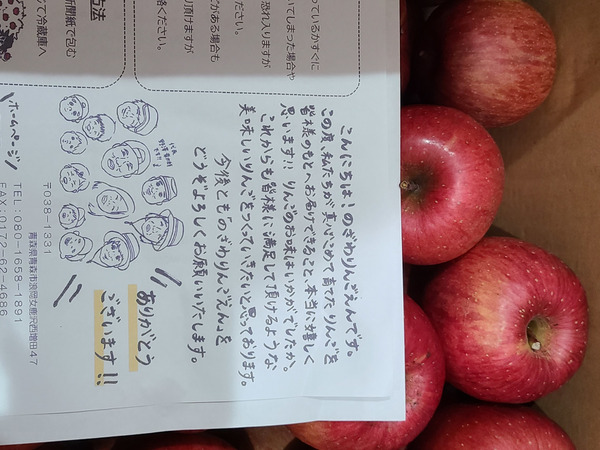 っているかすぐに
いてしまった場合や
恐れ入りますが
ださい。
がある場合も
り頂けますが
絡ください。
方法
新聞紙で包む
て冷蔵庫へ
こんにちは!のざわりんごえんです。
この度、私たちが真心こめて育てたりんごを
皆様のもとへお届けできること、本当に嬉しく
思います!!りんごのお味はいかがでしたか。
これからも皆様に満足して頂けるような
美味しいりんごをつくっていきたいと思っております。
今後とも「のざわりんごえん」を
どうぞよろしくお願いいたします。
ありがとう
ございます!!
〒038-1331
青森県青森市浪岡女鹿沢西増田47
TEL:080-1658-1891
FAX:0172-62-4686
ホームページ